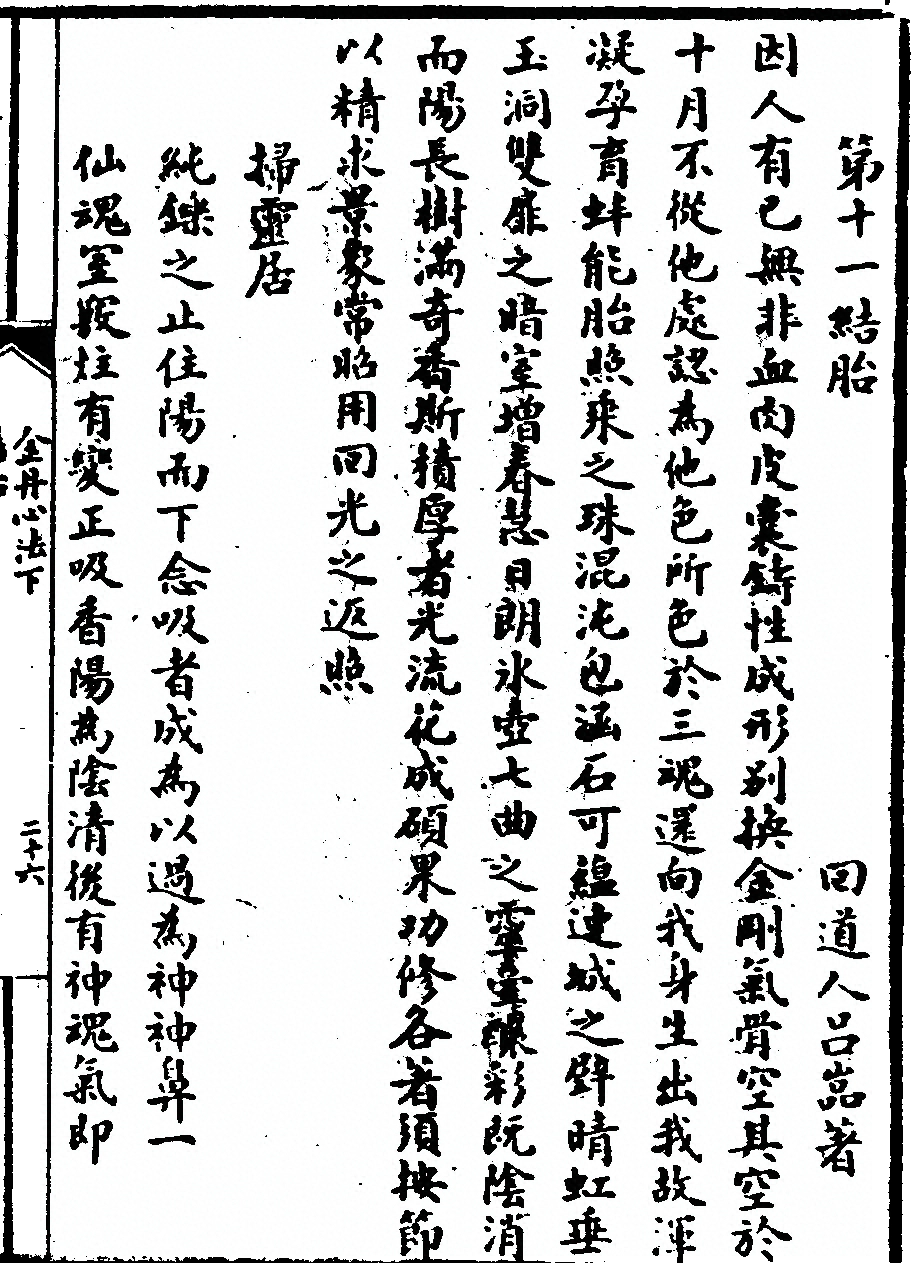 第十一結胎 回道人呂嵓著
因人有已無非血肉皮囊鑄性成形别換金剛氣骨空其空於
十月不從他處認為他色所色於三魂還向我身生出我故渾
凝孕育蚌能胎照乘之珠混沌包涵石可韞連城之璧晴虹垂
玉洞雙扉之暗室增春慧日朗氷壺七曲之靈臺釀彩既陰消
而陽長樹滿奇香斯積厚者光流花成碩果功修各著須按節
以精求景象常昭用回光之返照
掃靈居
純鑠之止住陽而下念吸者成為以過為神神鼻一
仙魂室瞉炷有變正吸香陽為陰清後有神魂氣即
金丹心法下
二十六